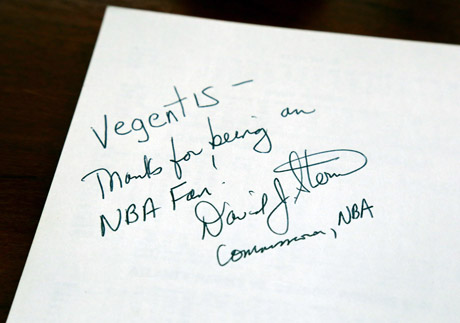 Vegentis -
Thanks for being an
NBA Fan!
David J. Stern
Commissioner, NBA